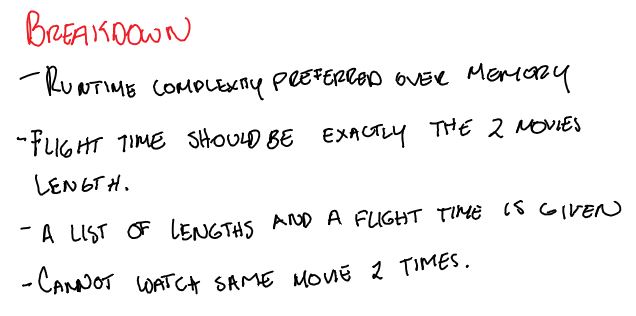 BREAKDOWN
- RUNTIME COMPLEXITY PREFERRED OVER MEMORY
- FLIGHT TIME SHOULD BE EXACTLY THE 2 MOVIES
LENGTH.
- A LIST OF LENGTHS AND A FLIGHT TIME IS GIVEN
- CANNOT WATCH SAME MOVIE 2 TIMES.